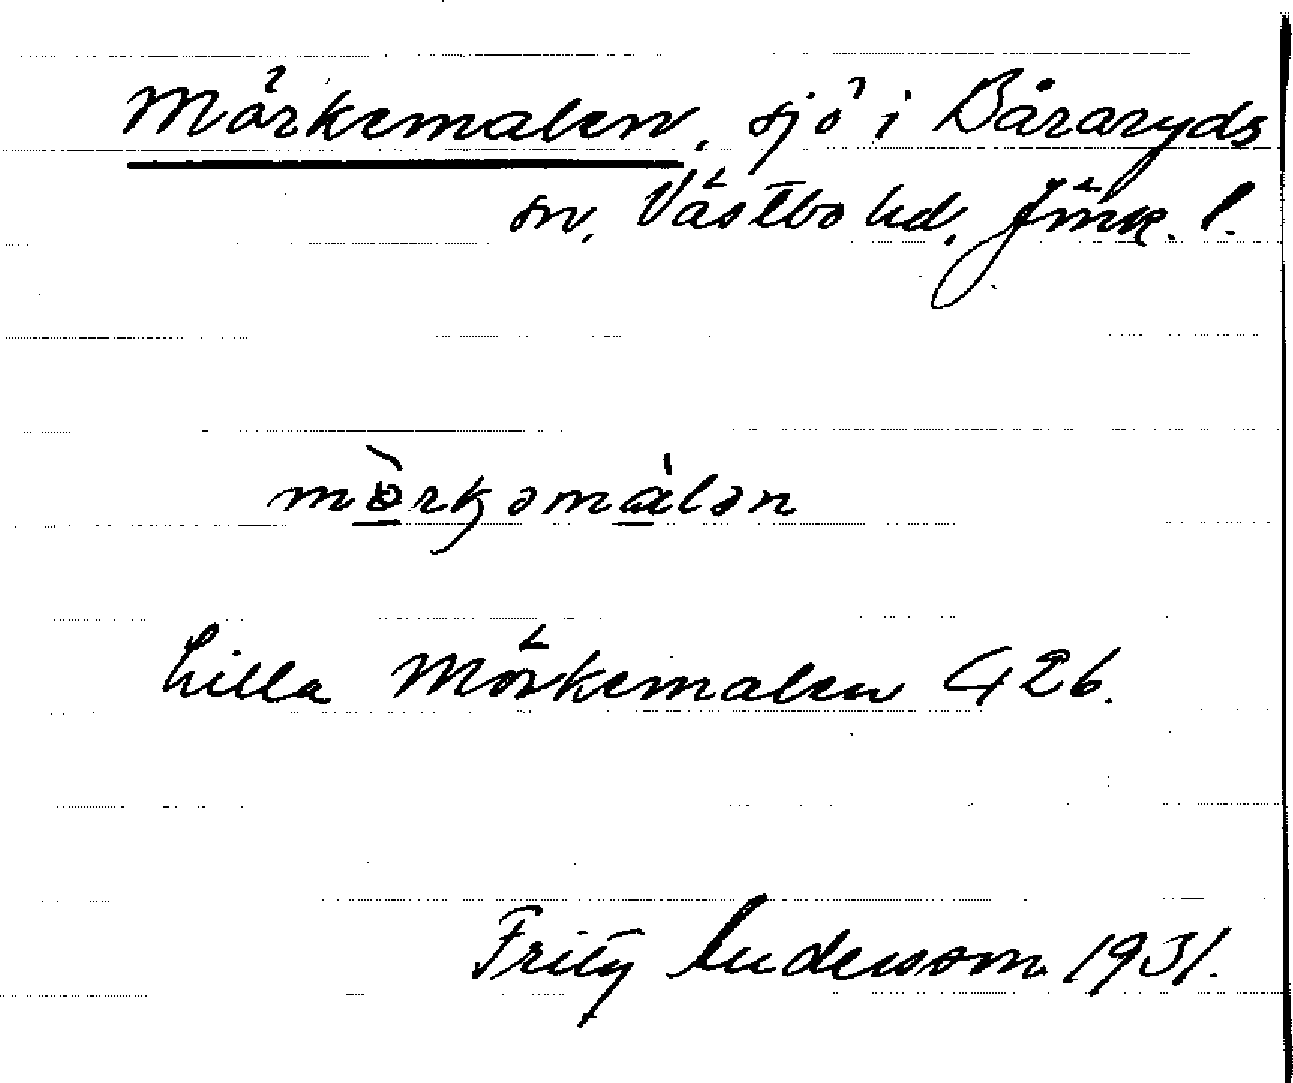 Mörkemalen, sjö i Båraryds
sn, Västbo hd, Jönk. l.
mörkəmàlən
Lilla Mörkemalen G 26.
Fritz Andersson 1931.